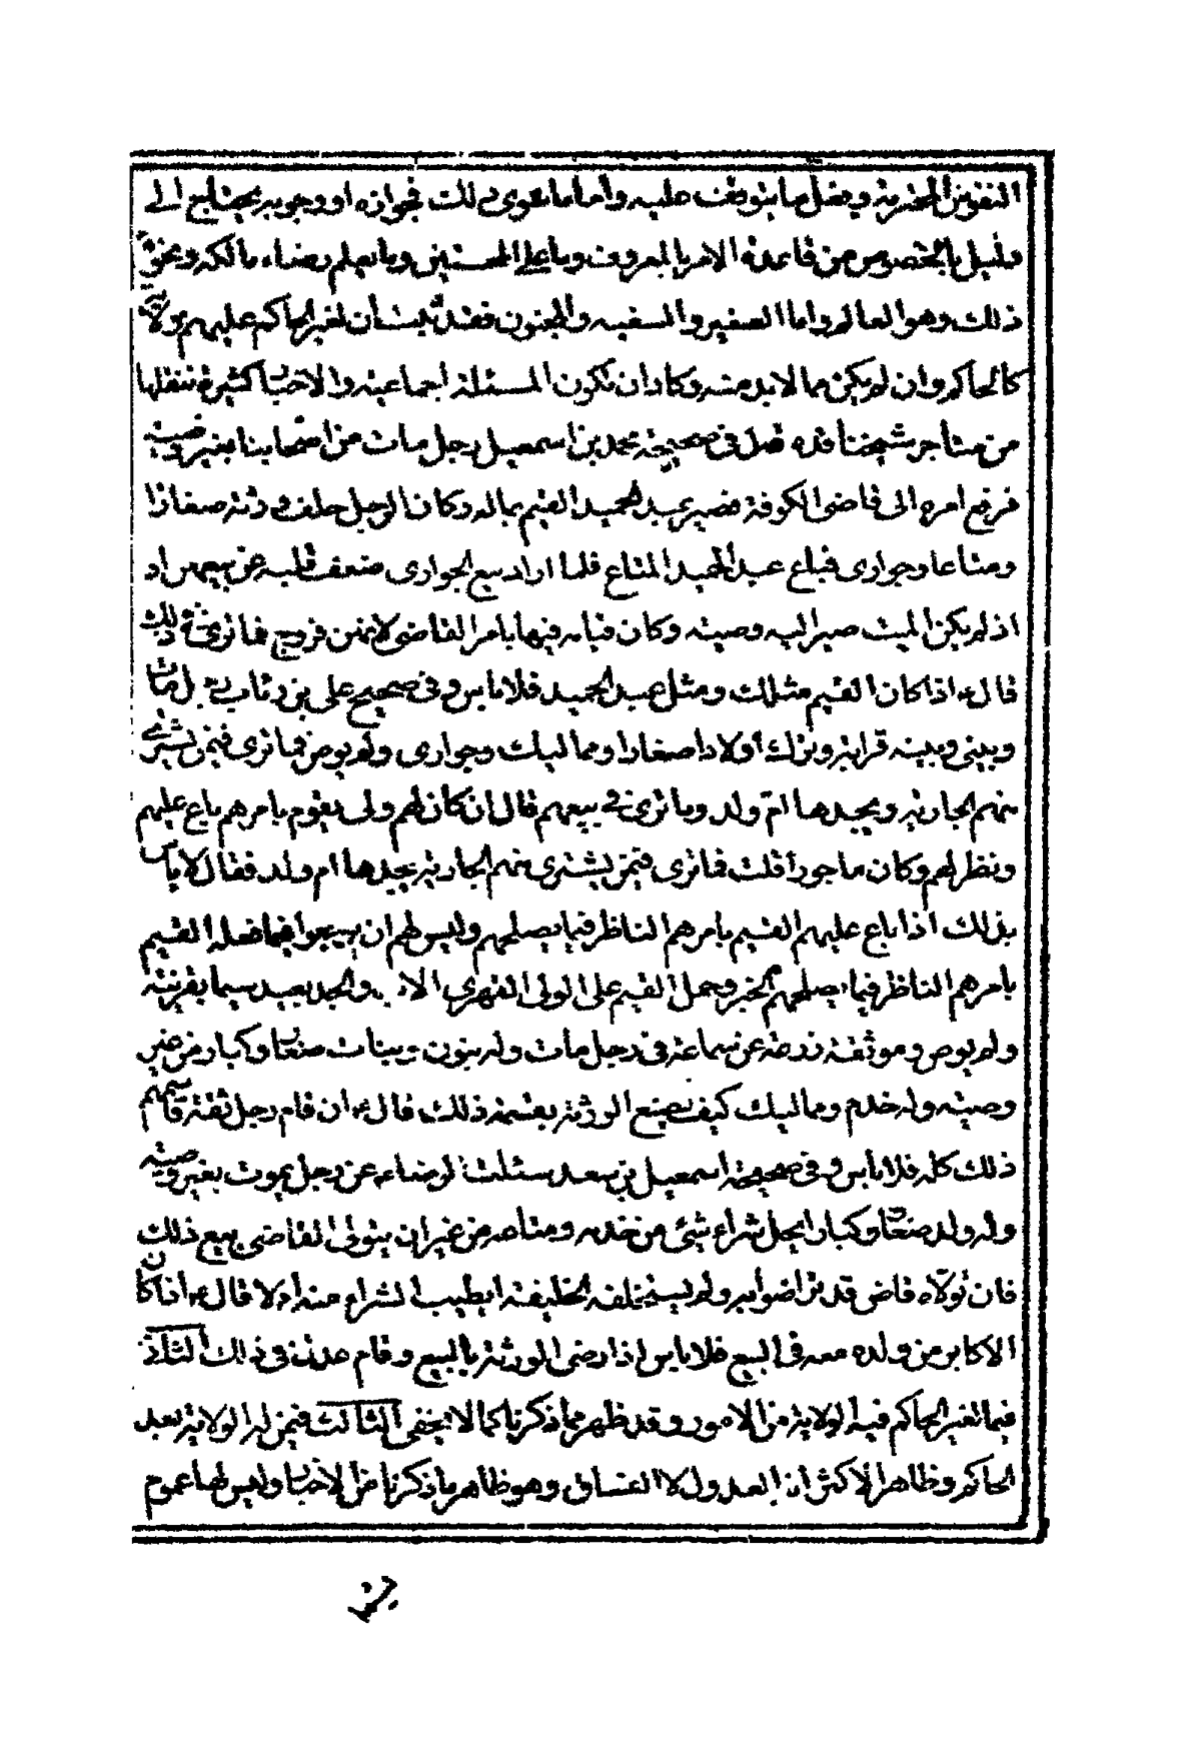 النفوس المحترمة وحفظ ما يتوقف عليه واما ما عدى ذلك فجوازه او وجوبه يحتاج الى
دليل بالخصوص من قاعدة الامر بالمعروف وما على المحسنين وما يعلم رضاء مالكه ونحو
ذلك وهو العالم واما الصغير والسفيه والمجنون فقد ثبت أن لغير الحاكم عليهم ولاية
كالحاكم وان لم يكن مما لابد منه وكاد ان تكون المسئلة اجماعية والاخبار كثيرة ننقلها
من متاجر شيخنا قده قال في صحيحة محمد بن اسمعيل رجل مات من اصحابنا بغير وصية
فرفع امره الى قاضى الكوفة فصير عبد الحميد القيم بماله وكان الرجل خلف ورثة صغارا
ومتاعا وجوارى فباع عبد الحميد المتاع فلما اراد بيع الجوارى ضعف قلبه عن بيعهن اد
اذ لم يكن الميت صير اليه وصيته وكان قيامه فيها بامر القاضى لانهن فروج فما ترى في ذلك
قال ع اذا كان القيم مثلك ومثل عبد الحميد فلا باس وفى صحيح على بن رئاب رجل مات
وبينى وبينه قرابة وترك أولادا صغارا ومماليك وجوارى ولم يوص فما ترى فيمن يشترى
منهم الجارية ويجدها ام ولد وما ترى في بيعهم قال ان كان لهم ولى يقوم بامرهم باع عليهم
ونظر لهم وكان ماجورا قلت فما ترى فيمن يشترى منهم الجارية يجدها ام ولد فقال لا باس
بذلك اذا باع عليهم القيم بامرهم الناظر فيما يصلحهم وليس لهم ان يرجعوا فيما فعله القيم
بامرهم الناظر فيما يصلحهم الخبر وحمل القيم على الولى القهرى الاب والجد بعيد سيما بقرينة
ولم يوص وموثقة زرعة عن سماعة فى رجل مات وله بنون وبنات صغار وكبار من غير
وصية وله خدم ومماليك كيف يصنع الورثة بقسمة ذلك قال ع ان قام رجل ثقة قاسمهم
ذلك كله فلا باس وفى صحيحة اسمعيل بن سعد سئلت الرضاء ع عن رجل يموت بغير وصية
وله ولد صغار وكبار ايحل شراء شئ من خدمه ومتاعه من غير ان يتولى القاضى بيع ذلك
فان تولاه قاض قد تراضوا به ولم يستخلفه الخليفة ايطيب الشراء منه ام لا قال ع اذا كان
الاكابر من ولده معه فى البيع فلا باس اذا رضى الورثة بالبيع وقام عدل فى ذلك الثانى
فيما لغير الحاكم فيه الولاية من الامور وقد ظهر مما ذكرنا كما لا يخفى الثالث فيمن له الولاية بعد
الحاكم وظاهر الاكثر انه العدول لا الفساق وهو ظاهر ما ذكرنا من الاخبار وليس لها عموم